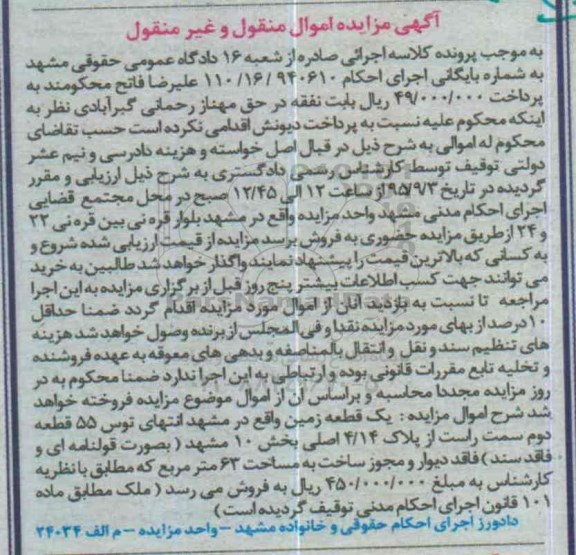 آگهی مزایده اموال منقول و غیر منقول
به موجب پرونده کلاسه اجرائی صادره از شعبه ۱۶ دادگاه عمومی حقوقی مشهد
به شماره بایگانی اجرای احکام ۹۴۰۶۱۰ /۱۱۰/۱۶ علیرضا فاتح محکومند به
پرداخت ۴۹/۰۰۰/۰۰۰ ریال بابت نفقه در حق مهناز رحمانی گبرآبادی نظر به
اینکه محکوم علیه نسبت به پرداخت دیونش اقدامی نکرده است حسب تقاضای
محکوم له اموالی به شرح ذیل در قبال اصل خواسته و هزینه دادرسی و نیم عشر
دولتی توقیف توسط کارشناس رسمی دادگستری به شرح ذیل ارزیابی و مقرر
گردیده در تاریخ ۹۵/۹/۳ از ساعت ۱۲ الی ۱۲/۴۵ صبح در محل مجتمع قضایی
اجرای احکام مدنی مشهد واحد مزایده واقع در مشهد بلوار قره نی بین قره نی ۲۲
و ۲۴ از طریق مزایده حضوری به فروش برسد مزایده از قیمت ارزیابی شده شروع و
به کسانی که بالاترین قیمت را پیشنهاد نمایند واگذار خواهد شد طالبین به خرید
می توانند جهت کسب اطلاعات بیشتر پنج روز قبل از برگزاری مزایده به این اجرا
مراجعه تا نسبت به بازدید آنان از اموال مورد مزایده اقدام گردد ضمنا حداقل
۱۰ درصد از بهای مورد مزایده نقدا و فی المجلس از برنده وصول خواهد شد هزینه
های تنظیم سند و نقل و انتقال بالمناصفه و بدهی های معوقه به عهده فروشنده
و تخلیه تابع مقررات قانونی بوده و ارتباطی به این اجرا ندارد ضمنا محکوم به در
روز مزایده مجددا محاسبه و براساس آن از اموال موضوع مزایده فروخته خواهد
شد شرح اموال مزایده : یک قطعه زمین واقع در مشهد انتهای توس ۵۵ قطعه
دوم سمت راست از پلاک ۴/۱۴ اصلی بخش ۱۰ مشهد ( بصورت قولنامه ای و
فاقد سند ) فاقد دیوار و مجوز ساخت به مساحت ۶۳ متر مربع که مطابق با نظریه
کارشناس به مبلغ ۴۵۰/۰۰۰/۰۰۰ ریال به فروش می رسد ( ملک مطابق ماده
۱۰۱ قانون اجرای احکام مدنی توقیف گردیده است )
دادورز اجرای احکام حقوقی و خانواده مشهد – واحد مزایده – م الف ۲۴۰۳۴